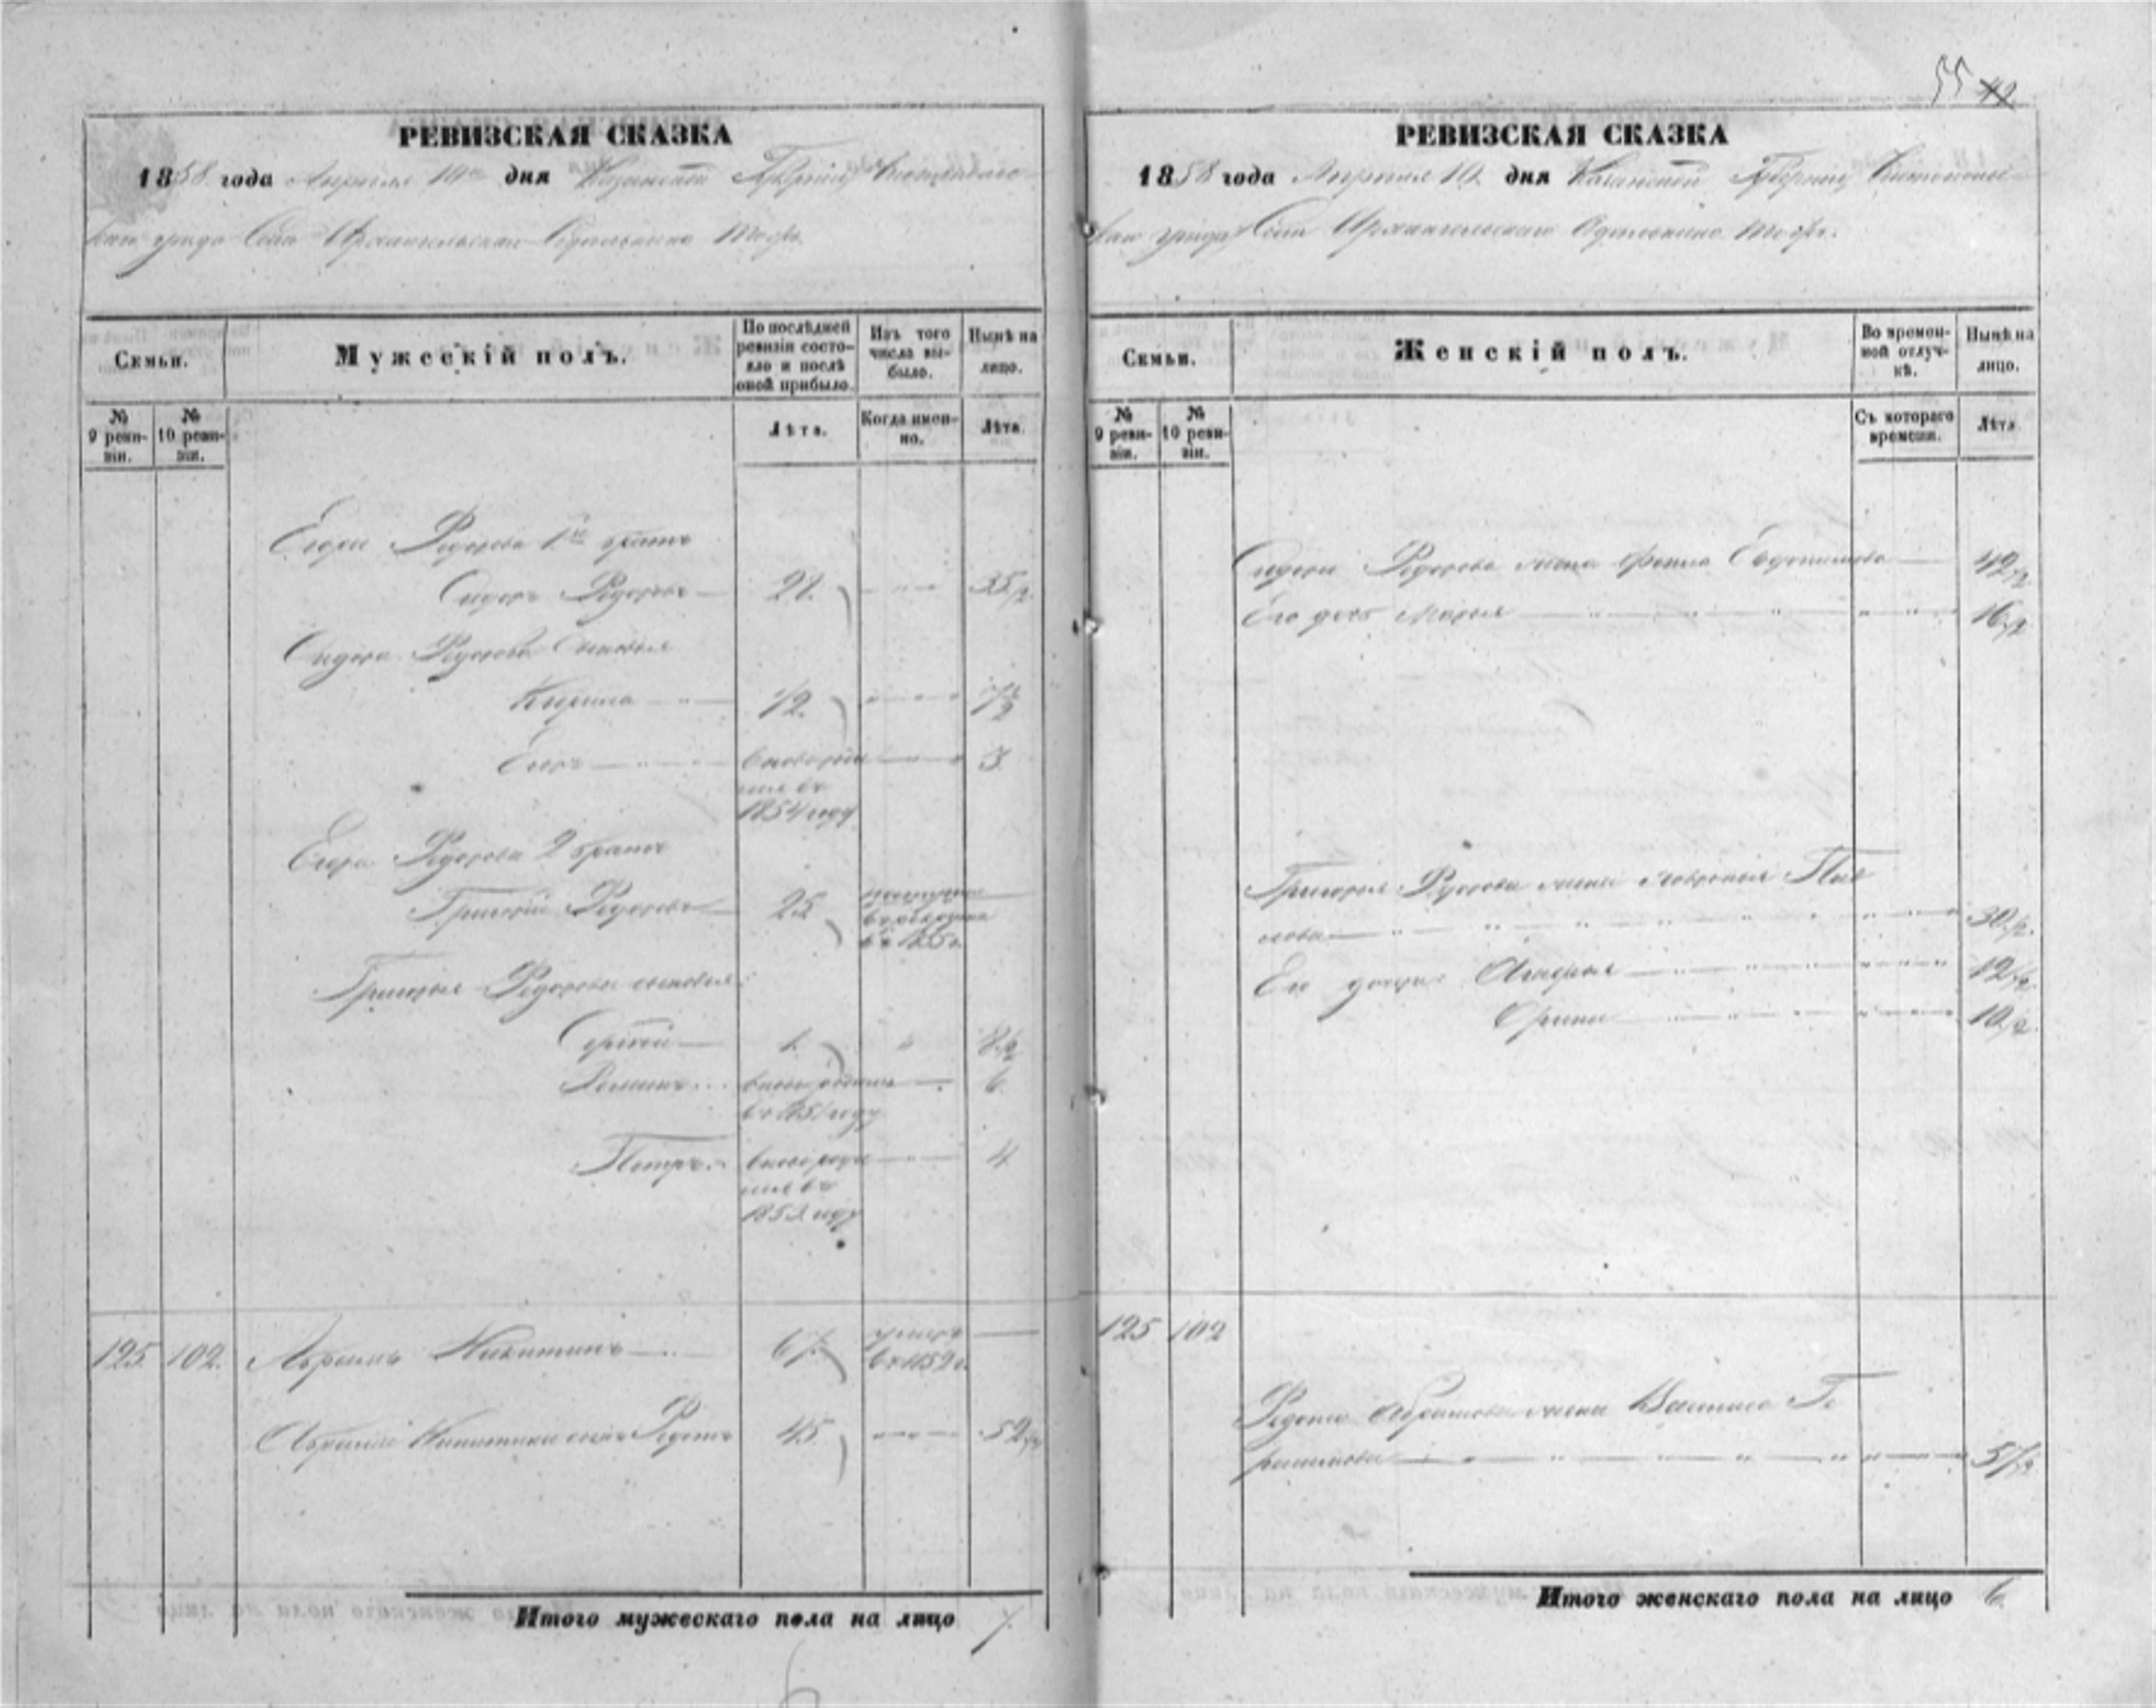 55 42
РЕВИЗСКАЯ СКАЗКА
1858 года Апреля 10 дня Казанской Губернiи
уезда Села Архангельскаго
Семьи.
Мужескiй полъ.
По послѣдней ревизiи состояло и послѣ оной прибыло.
Изъ того числа выбыло.
Нынѣ на лицо.
№ 9 ревизiи.
№ 10 ревизiи.
Лѣта.
Когда именно.
Лѣта.
Егора Федорова 1й братъ
Сидоръ Федоровъ 28. 35½
Сидора Федорова сыновья
Кирила ½. 7½
Егоръ 3
вновь рожденъ въ
1854 году
Егора Федорова 2 братъ
Григорiй Федоровъ 25
въ рекруты
въ 1855 г.
Григорья Федорова сыновья:
Сергѣй 1. 8½
вновь рожденъ 6.
въ 1851 году
Петръ вновь рожденъ 4
въ
1853 году
125. 102. Абрамъ Никитинъ 67. умеръ
въ 1852 г.
Абрама Никитина сынъ Федотъ 45. 52½
Итого мужескаго пола на лицо 7.
РЕВИЗСКАЯ СКАЗКА
1858 года Апреля 10. дня Казанской Губернiи
уезда Села Архангельскаго
Семьи.
Женскiй полъ.
Во временной отлучкѣ.
Нынѣ на лицо.
№ 9 ревизiи.
№ 10 ревизiи.
Съ котораго времени.
Лѣта.
Сидора Федорова жена Фекла Евдокимова 42½
Его дочь Марья 16½
Григорья Федорова жена
30½.
Его дочери 12½
Орина 10½
125 102
Федота Абрамова жена Василиса Ге
расимова 57½
Итого женскаго пола на лицо 6.